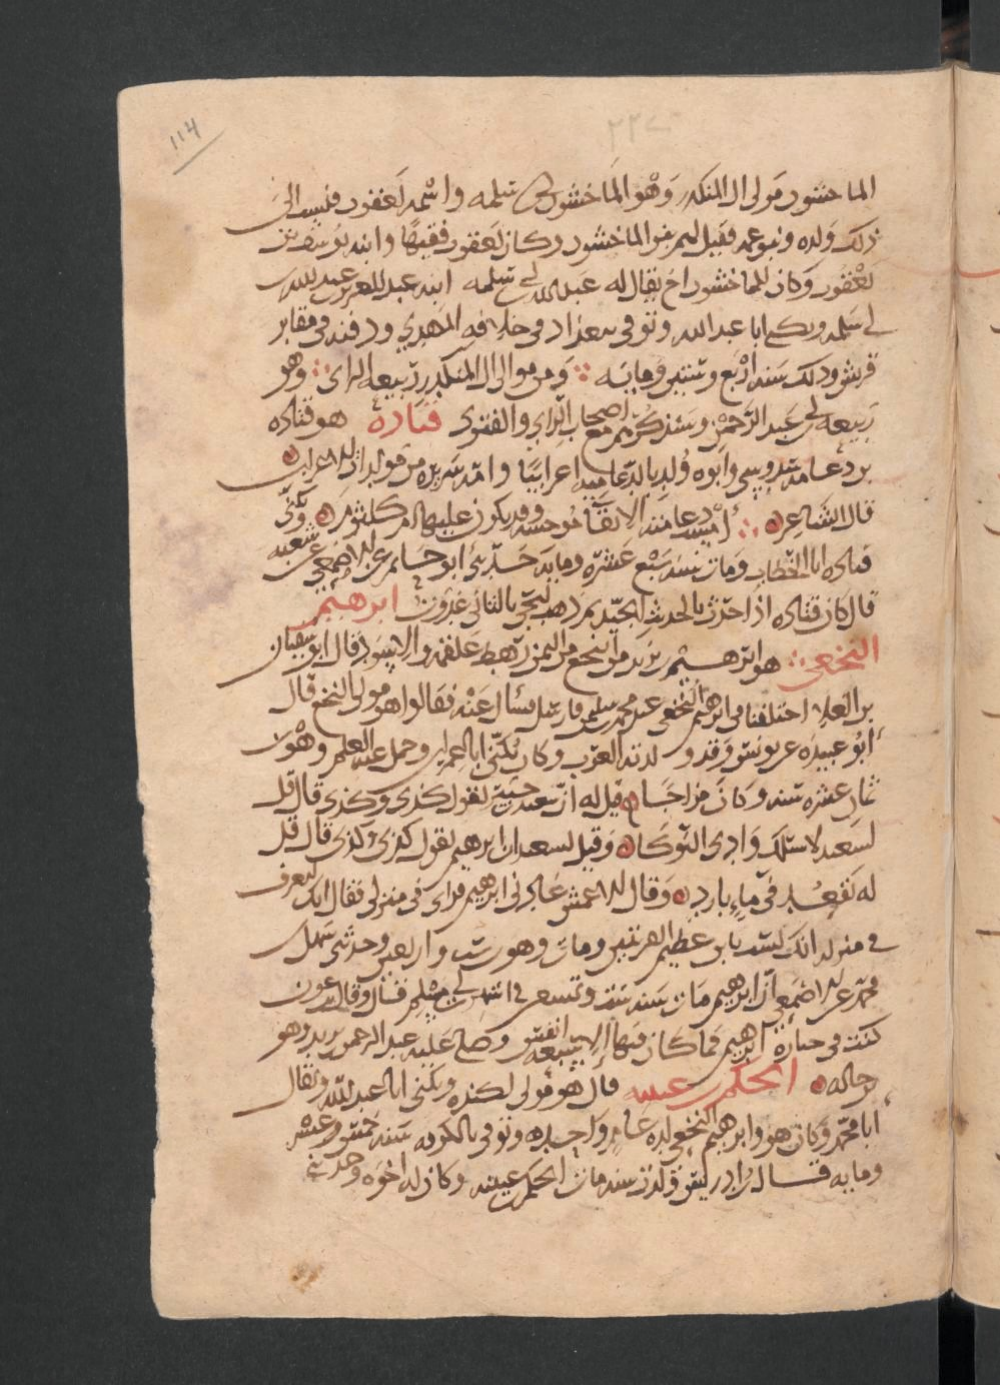 114
الماجشون مولى ال المنكدر وهو الماجشون بن ابي سلمه واسمه يعقوب فنسب الى
ذلك ولده وبنو عمه فقيل لهم بنو الماجشون وكان يعقوب فقيها وابنه يوسف بن
يعقوب وكان للماجشون اخ يقال له عبد الله بن ابي سلمه ابنه عبد العزيز بن عبد الله بن
ابي سلمه ويكنى ابا عبد الله وتوفي ببغداد في خلافه المهدي ودفن في مقابر
قريش وذلك سنه اربع وستين ومايه ومن موالى ال المنكدر ربيعه الراى وهو
ربيعه بن ابي عبد الرحمن وسنذكره مع اصحاب الراي والفتوى قتادة هو قتاده
بن دعامه سدوسي وابوه ولد بالدعاميه اعرابيا وامه سريره من مولدات الاعراب
قال الشاعر
قتاده ابا الخطاب ومات سنه سبع عشرة ومايه حدثني ابو حاتم عن الاصمعي عن شعبه
قال كان قتاده اذا حدث بالحديث الجيد ثم ذهب يجي بالثاني غدوة ابرهيم
النخعي هو ابرهيم بن يزيد من النخع من اليمن رهط علقمه والاسود قال ابو سفيان
بن العلا اختلفنا في ابرهيم النخعي عند محمد بن سلمن فارسل يسال عنه فقالوا هو مولى النخع قال
ابو عبيده عن يونس وقد ولدته العرب وكان يكنى ابا عمران وحمل عنه العلم وهو ابن
ثمان عشره سنه وكان مزاحا قيل له ان سعيد بن جبير يقول كذى وكذى قال قل
لسعيد لاسلك وادى النوكا وقيل لسعيد ان ابرهيم يقول كذى وكذى قال قل
له يقعد في ماء بارد وقال الاعمش عادني ابرهيم فراى في منزلي فقال انك لتعرف
في منزلك انك لست بابن عظيم القريتين ومات وهو ابن ست واربعين وحدثني سهل بن
محمد عن الاصمعي ان ابرهيم مات سنه ست وتسعين في ابن ابي مسلم قال وقال ابن عون
كنت في جنازة ابرهيم فما كان فيها الا سبعه انفس وصلى عليه عبد الرحمن بن يزيد وهو
ابن خاله الحكم بن عيينه قال هو مولى لكنده ويكنى ابا عبد الله ويقال
ابا محمد وكان هو وابرهيم النخعي لده عام واحد وتوفي بالكوفه سنه خمس وعشره
ومايه قال ابن ادريس ولدت سنه مات الحكم بن عيينه وكان له اخوه وحدثني